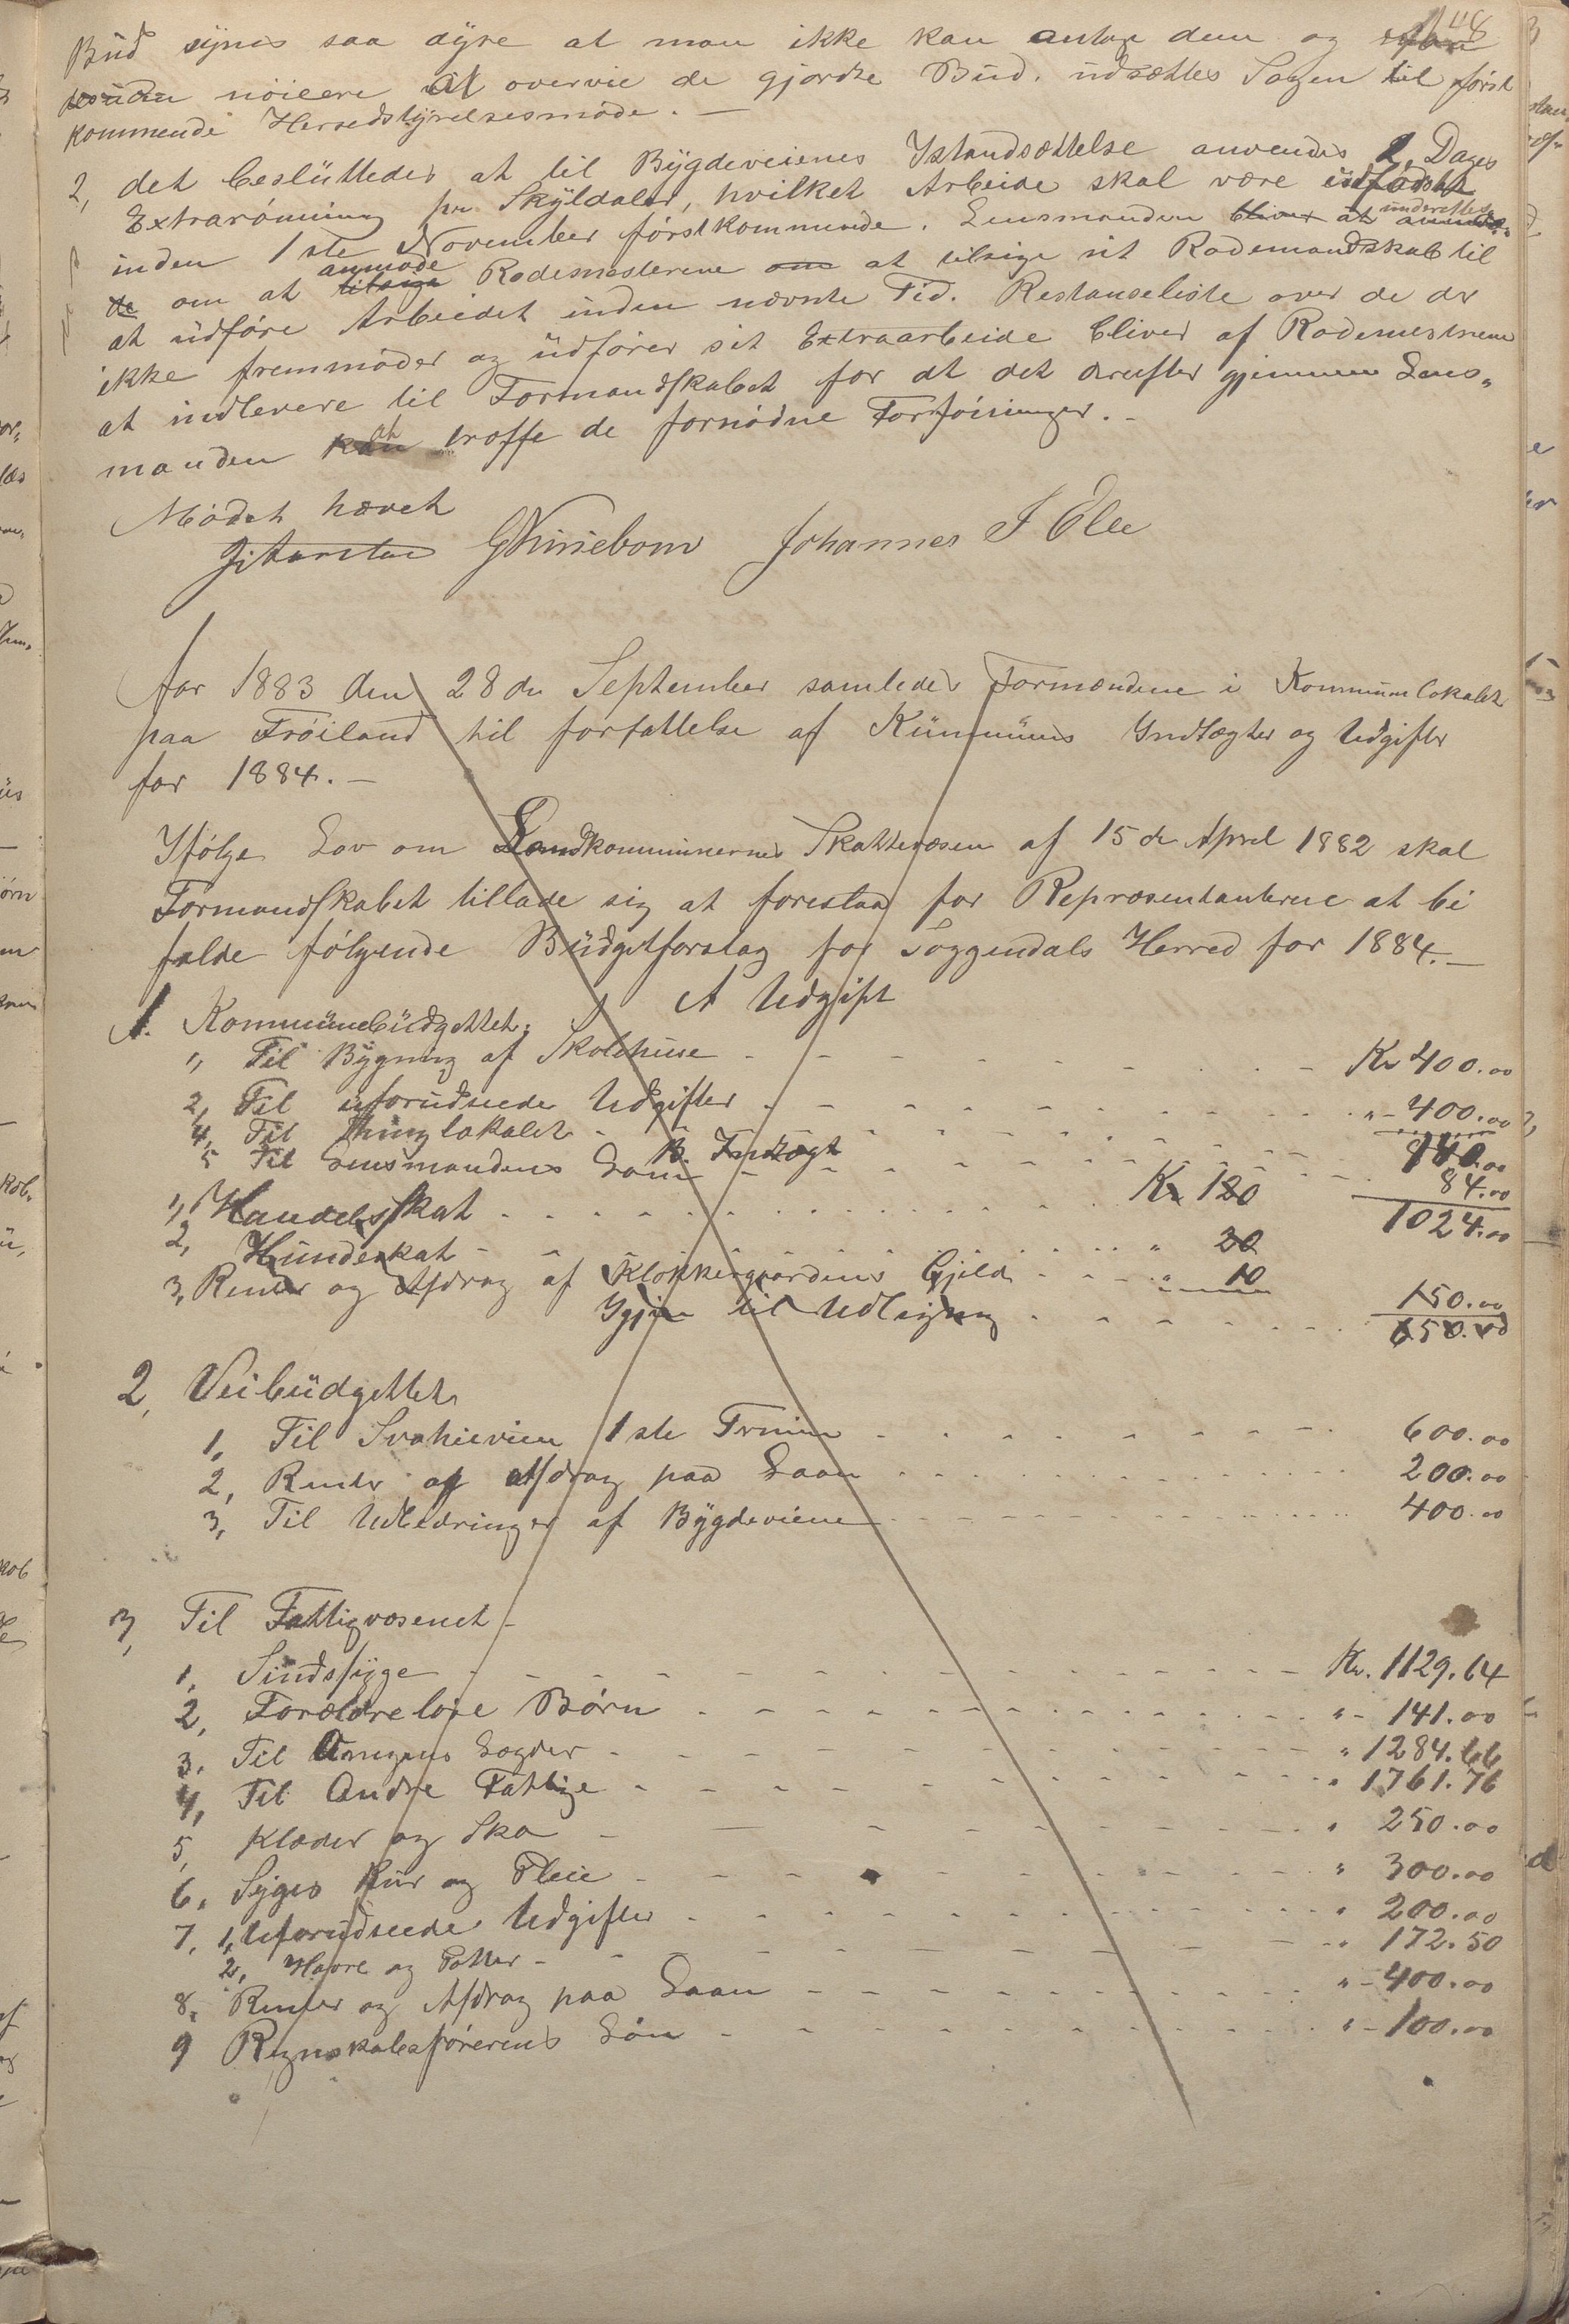 48
Bud synes saa dyre at man ikke kan antage dem og
desuden nøiere at overveie de gjordte Bud. udsættes Sagen til først
kommende Herredstyrelsesmøde. —
2, det besluttedes at til Bygdeveienes Istandsættelse anvendes 2 Dages
Extrarømning pr Skyldaler, hvilket Arbeide skal være udførdt
inden 1ste November førstkommende. Lensmanden bliver at underettes
de om at anmode Rodemesterene om at tilsige sit Rodemandskab til
at udføre Arbeidet inden nævnte Tid. Restanseliste over de der
ikke fremmøder og udfører sit Extraarbeide bliver af Rodemestrene
at indlevere til Formandskabet for at det derefter gjennem Lens-
manden kan at træffe de fornødne Forføininger. -
Mødet hævet
Johannes J Eie
Aar 1883 den 28de September samledes Formændene i Kommunelokalet
paa Frøiland til forfattelse af Kummuns Indtægter og Udgifter
for 1884. —
Ifølge Lov om Landkommunernes Skattevæsen af 15de April 1882 skal
Formandskabet tillade sig at foreslaa for Repræsentanterne at bi
falde følgende Budgetforslag for Soggendals Herred for 1884. —
A Udgift
1. Kommunebudgettet.
1, Til Bygning af Skolehuse - - - Kr 400.00
2, Til uforudseede Udgifter - - - " - 400.00
4, Til Thinglokalet - - - 140.00
5 Til Lensmandens Løn - - - 84.00
1024.00
B. Indtægt
1, Handelsskat - - - Kr 120
2, Hundeskat - - - " 20
3, Renter og Afdrag af Klokkergaardens Gjeld - - - " 10
150.00
Igjen til Udligning - - - 650.00
2, Veibudgettet
1, Til Svaheiveien 1ste Termin - - - 600.00
2, Renter og Afdrag paa Laan - - - 200.00
3, Til Udbedringer af Bygdeveiene - - - 400.00
3, Til Fattigvæsenet -
1, Sindssyge - - - Kr. 1129.64
2, Forældreløse Børn - - - " - 141.00
3, Til Omgangs Lægder - - - " 1284.66
4, Til Andre Fattige - - - " 1761.76
5, Klæder og Sko - - - " 250.00
6, Syges Kur og Pleie - - - " 300.00
7, 1, Uforudseede Udgifter - - - " 200.00
2, Havre og Potter - - - " 172.50
8, Renter og Afdrag paa Laan - - - " - 400.00
9 Regnskabsførerens Løn - - - " - 100.00